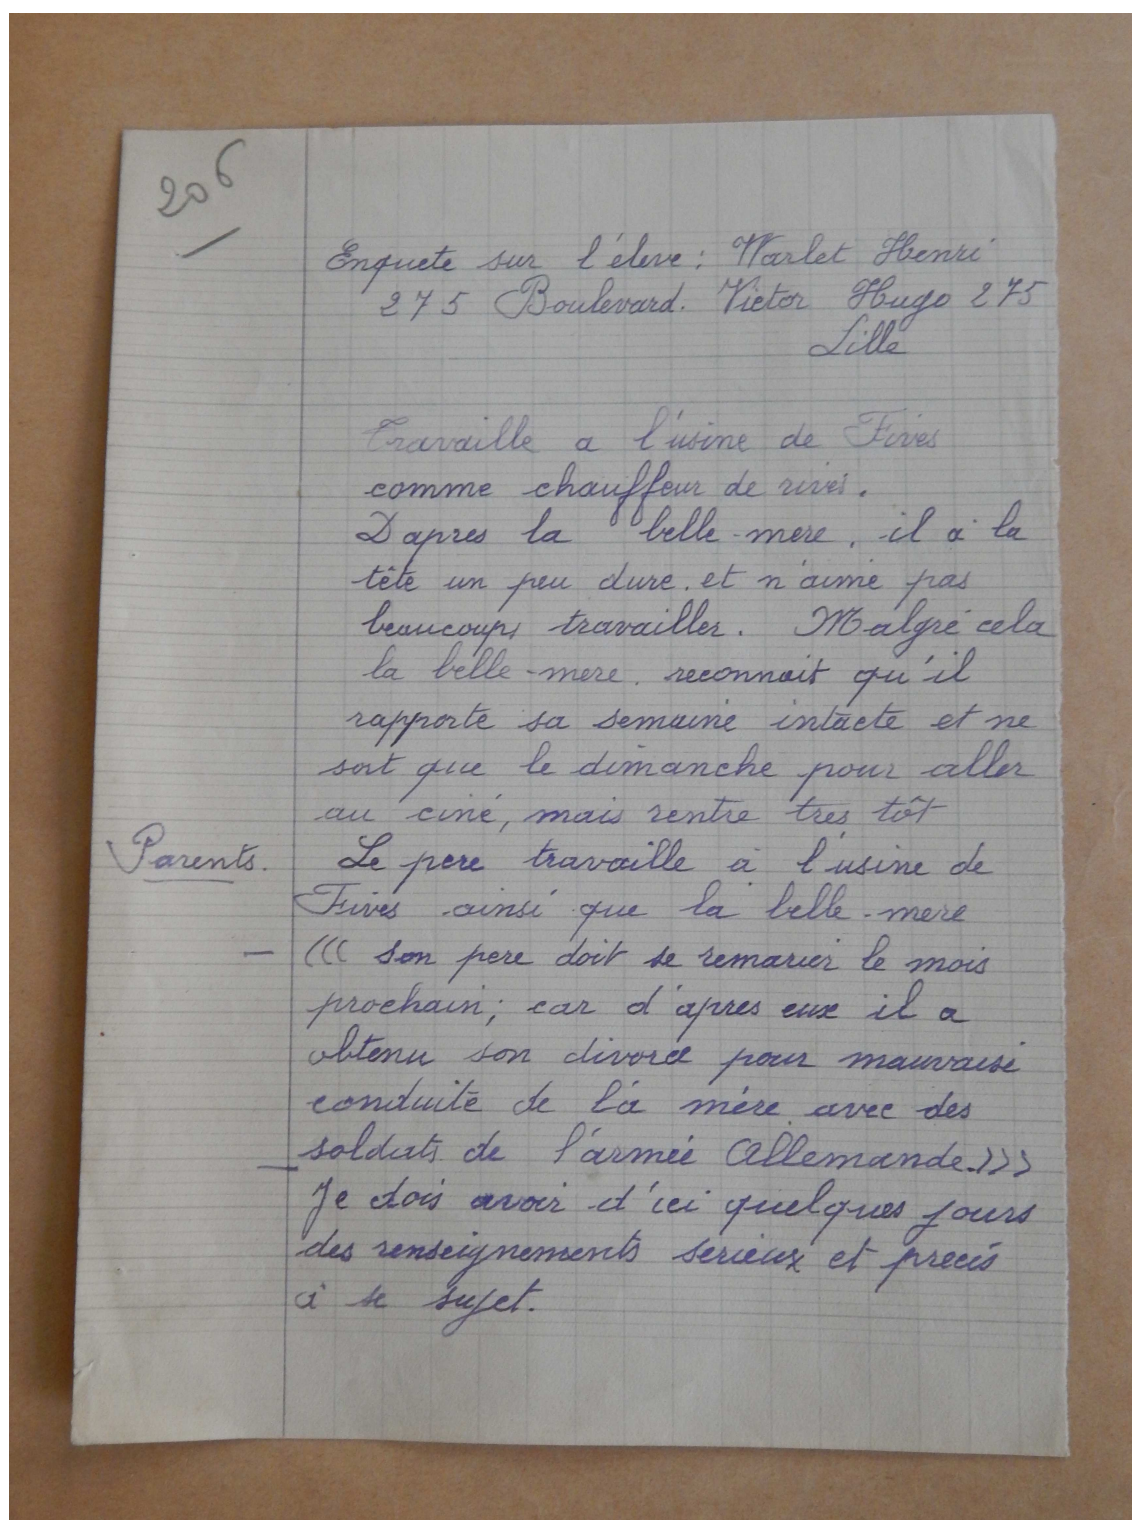 206
Enquete sur l'éleve : Warlet Henri
275 Boulevard. Victor Hugo 275
Lille
Travaille a l'usine de Fives
comme chauffeur de rives.
D'apres la belle-mere, il a la
tête un peu dure. et n'aime pas
beaucoups travailler. Malgré cela
la belle-mere. reconnait qu'il
rapporte sa semaine intacte et ne
sort que le dimanche pour aller
au ciné, mais rentre tres tôt
Parents. Le pere travaille à l'usine de
Fives ainsi que la belle-mere
— ((( son pere doit se remarier le mois
prochain; car d'apres eux il a
obtenu son divorce pour mauvaise
conduite de la mére avec des
— soldats de l'armée Allemande.)))
Je dois avoir d'ici quelques jours
des renseignements serieux et precis
à se sujet.